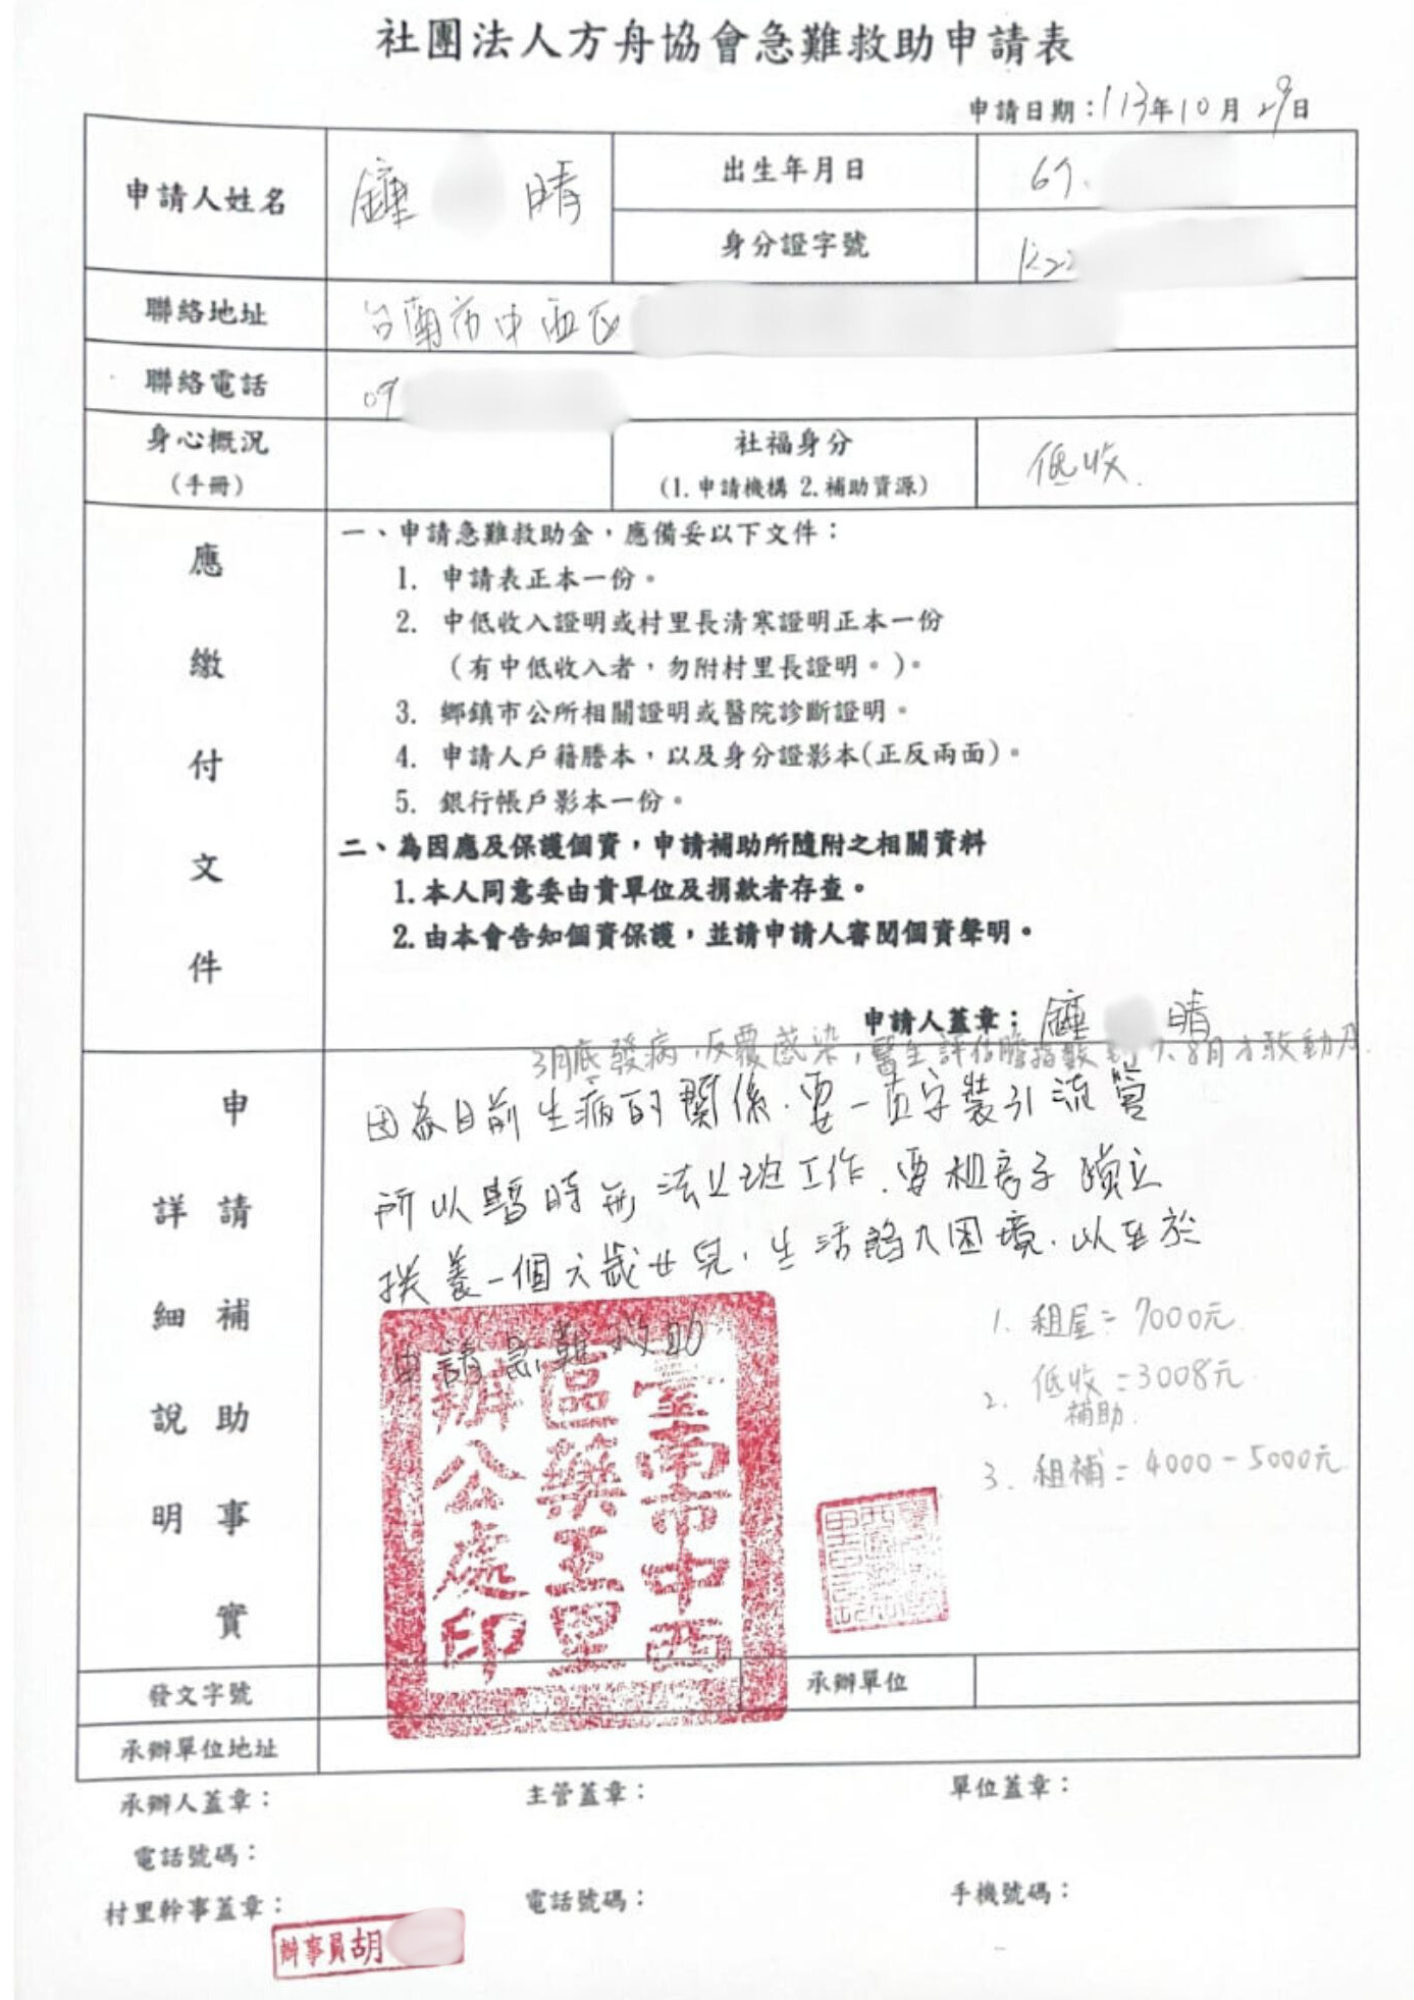 社團法人方舟協會急難救助申請表
申請日期：113年10月29日
申請人姓名
鍾 晴
出生年月日
69.
身分證字號
聯絡地址
台南市中西区
聯絡電話
09
身心概況
(手冊)
社福身分
(1.申請機構 2.補助資源)
低收.
應繳付文件
一、申請急難救助金，應備妥以下文件：
1. 申請表正本一份。
2. 中低收入證明或村里長清寒證明正本一份
(有中低收入者，勿附村里長證明。)。
3. 鄉鎮市公所相關證明或醫院診斷證明。
4. 申請人戶籍謄本，以及身分證影本(正反兩面)。
5. 銀行帳戶影本一份。
二、為因應及保護個資，申請補助所隨附之相關資料
1.本人同意委由貴單位及捐款者存查。
2.由本會告知個資保護，並請申請人審閱個資聲明。
申請人蓋章：鍾 晴
3月底發病，反覆感染，醫生評估膽指數 8月才敢動刀.
申請補助事實
詳細說明
因為目前生病的關係.要一直安裝引流管
所以暫時無法上班工作.要租房子 獨立
扶養一個六歲女兒，生活陷入困境.以至於
申請急難救助
1. 租屋=7000元
2. 低收=3008元
補助.
3. 租補=4000-5000元
臺南市中西
區藥王里
辦公處印
發文字號
承辦單位
承辦單位地址
承辦人蓋章：
主管蓋章：
單位蓋章：
電話號碼：
村里幹事蓋章：
電話號碼：
手機號碼：
辦事員胡